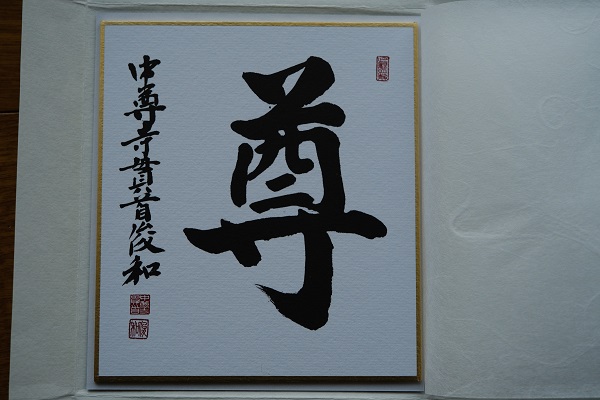 尊
中尊寺貫首俊和